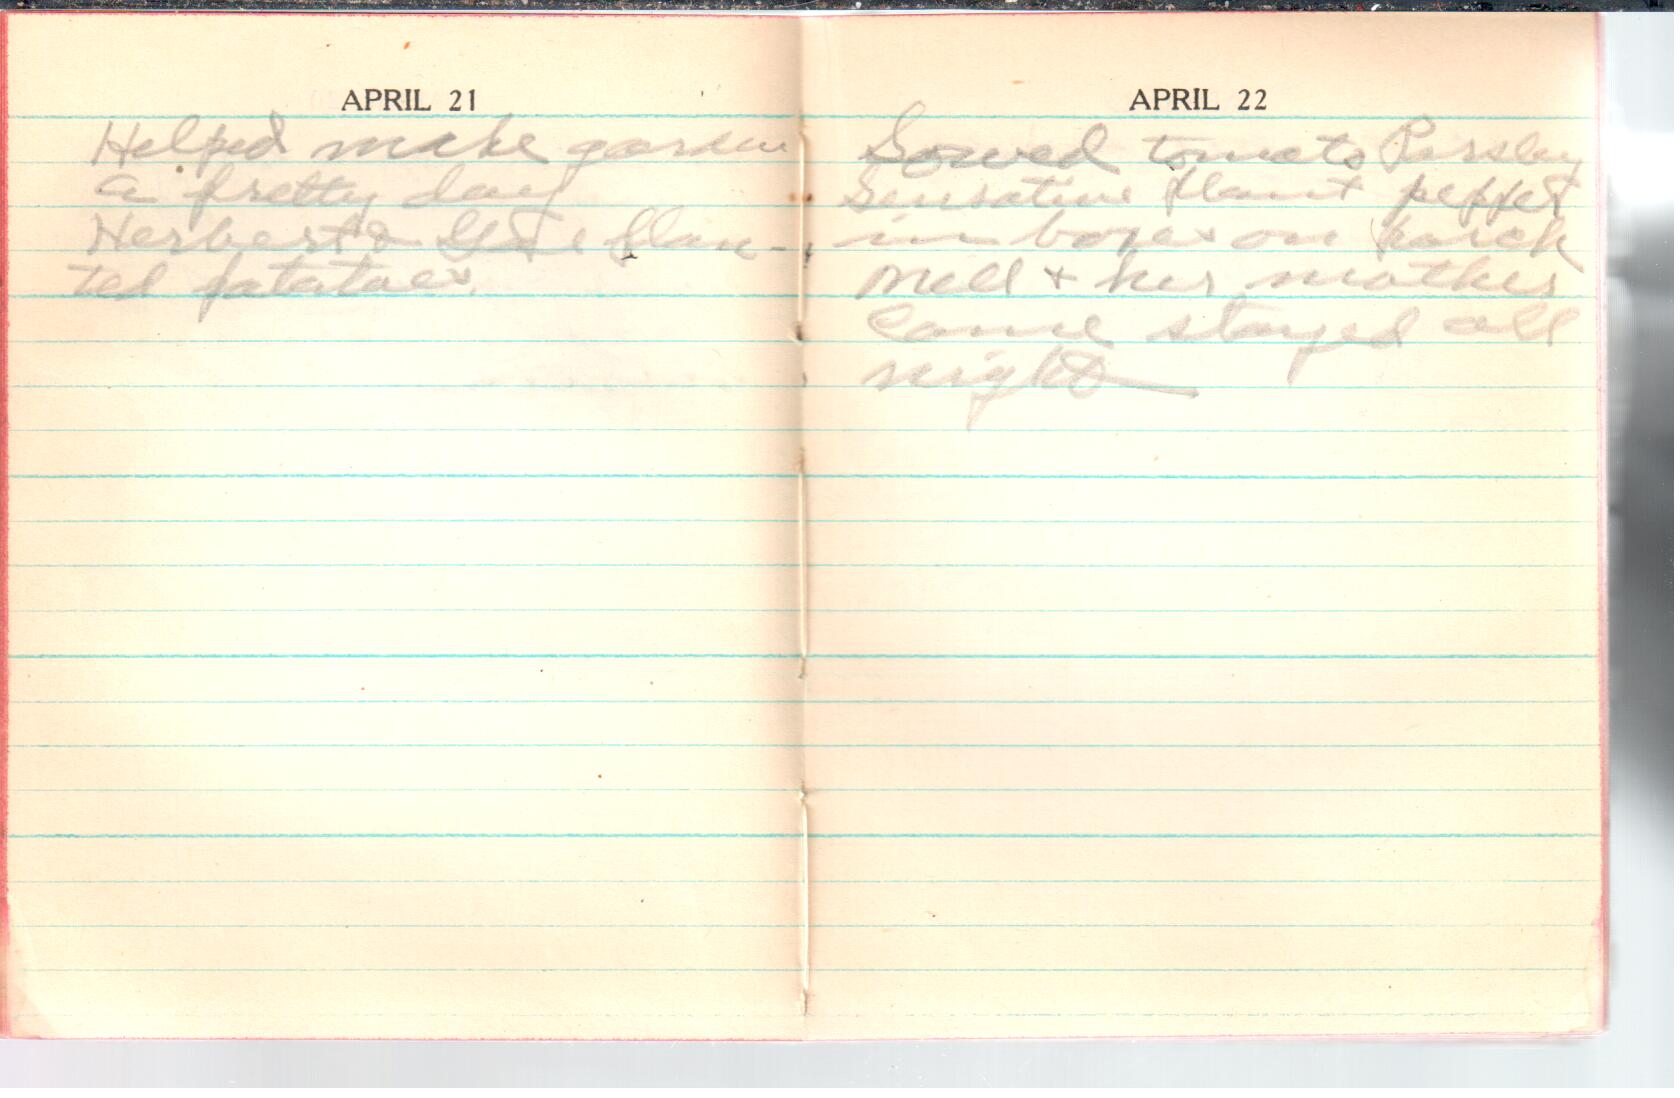 APRIL 21
Helped make garden
a pretty day
Herbert & plan-
ted patatoes.
APRIL 22
Sowed tomato Parsley
Sensative Plant pepper
in boxes on porch
Mell + her mother
Came stayed all
night